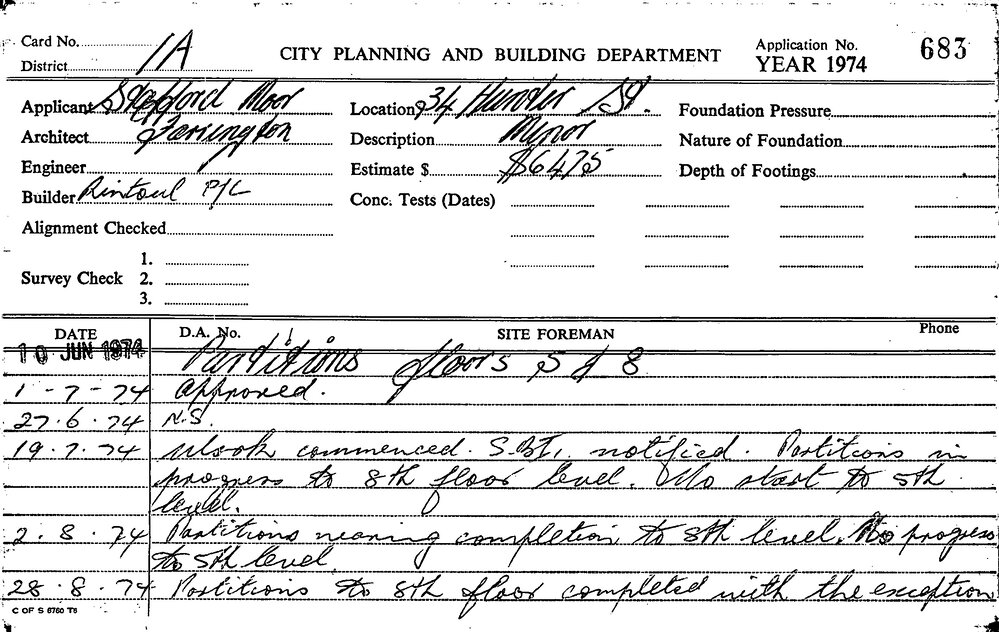 Card No. 1A
District
CITY PLANNING AND BUILDING DEPARTMENT
Application No. 683
YEAR 1974
Applicant Stafford Moor
Location 34 Hunter St.
Foundation Pressure
Architect Farrington
Description Minor
Nature of Foundation
Engineer
Estimate $ $6475
Depth of Footings
Builder Rintoul P/L
Conc. Tests (Dates)
Alignment Checked
Survey Check 1.
2.
3.
DATE D.A. No. SITE FOREMAN Phone
10 JUN 1974 Partitions floors 5 & 8
1-7-74 Approved.
27.6.74 N.S.
19.7.74 Work commenced. S.B.I. notified. Partitions in
progress to 8th floor level. No start to 5th
level.
2.8.74 Partitions nearing completion to 8th level. No progress
to 5th level.
28.8.74 Partitions to 8th floor completed with the exception
C OF S 6760 T5